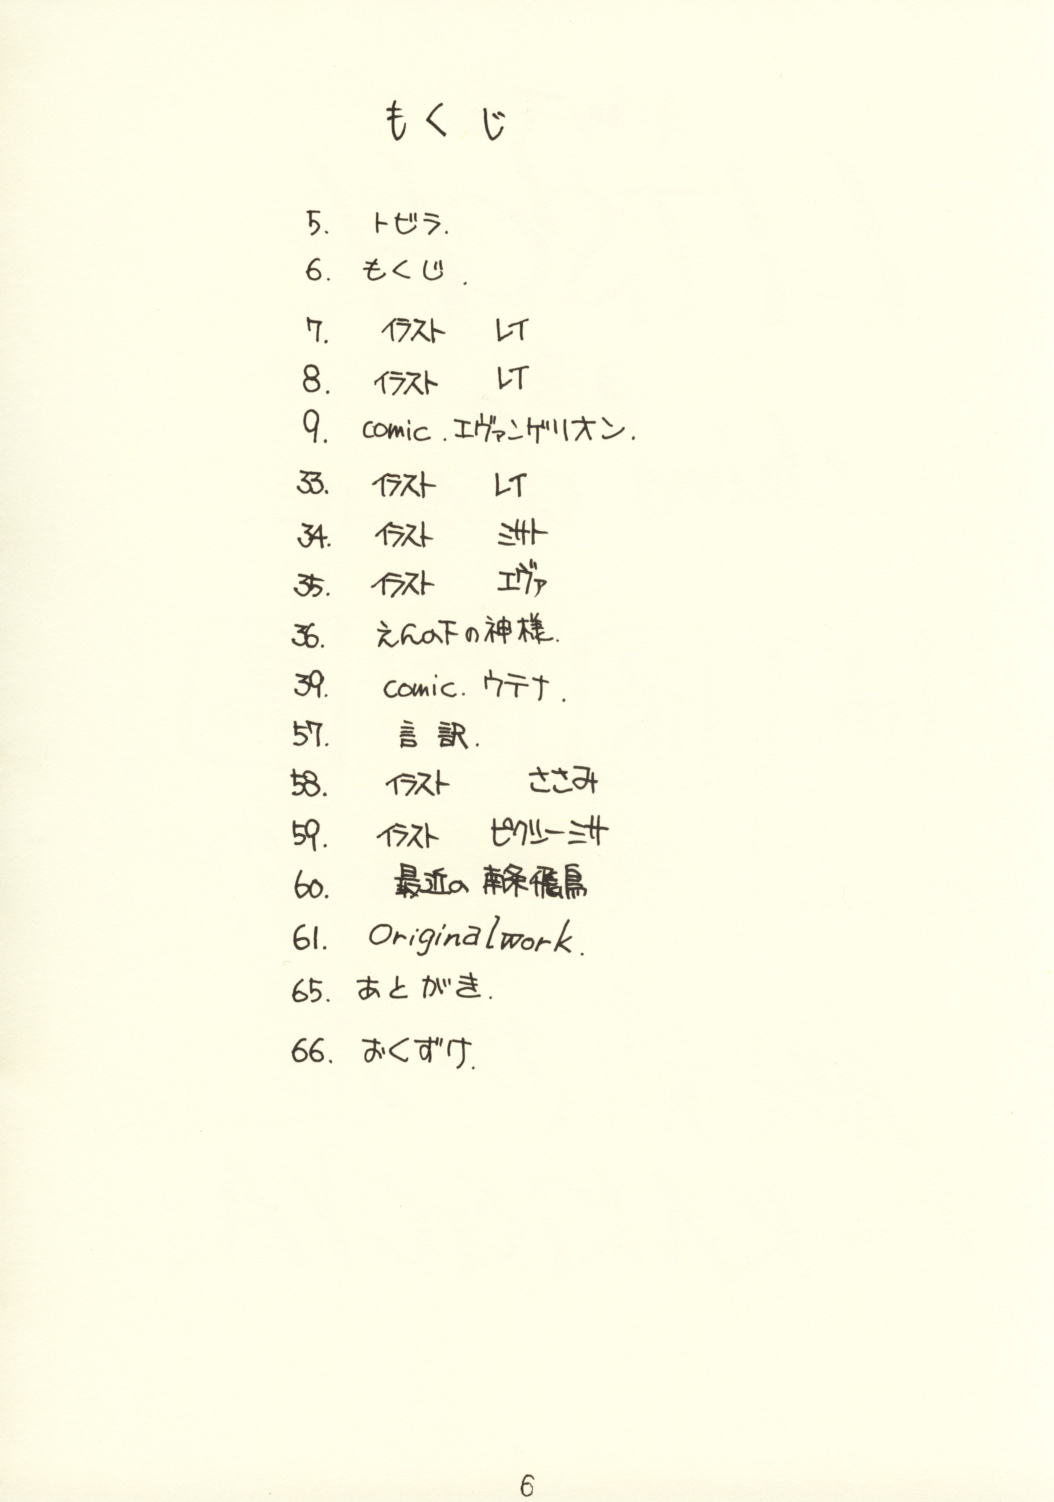 もくじ
5. トビラ.
6. もくじ.
7. イラスト レイ
8. イラスト レイ
9. comic.エヴァンゲリオン.
33. イラスト レイ
34. イラスト ミサト
35. イラスト エヴァ
36. えんの下の神様.
39. comic. ウテナ.
57. 言訳.
58. イラスト ささみ
59. イラスト ピクシーミサ
60. 最近の南条飛鳥
61. Original work.
65. あとがき.
66. おくずけ.
6